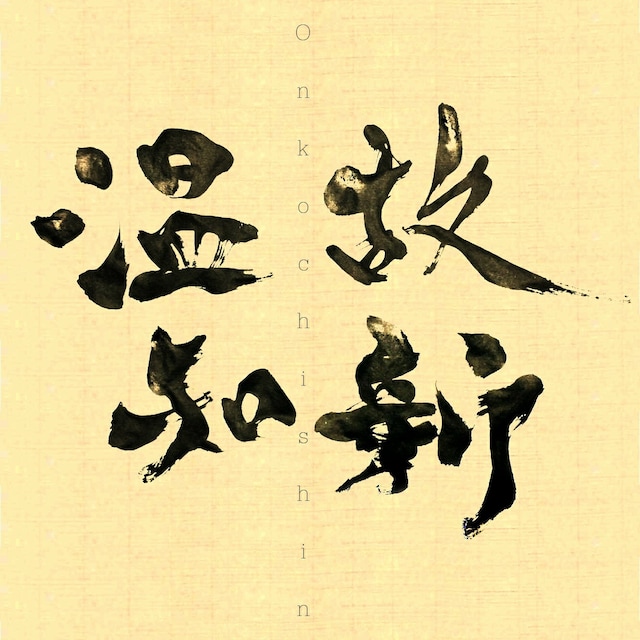 温故
知新
Onkochishin